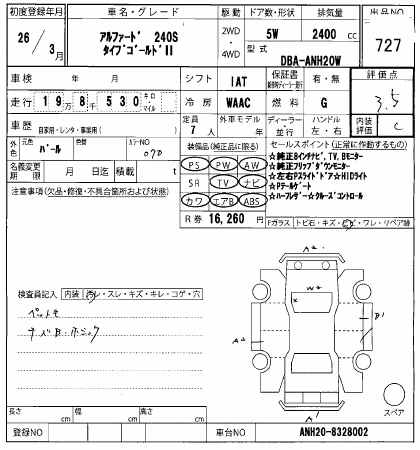 初度登録年月
車名・グレード
駆動
ドア数・形状
排気量
出品NO
26 / 3月
アルファード 240S
タイプゴールドⅡ
2WD
・
4WD
5W
2400 cc
型式
DBA-ANH20W
727
車検 年 月
シフト
IAT
保証書
有・無
評価点
3.5
走行 19万8千530 キロ・マイル
冷房
WAAC
燃料
G
車歴
自家用・レンタ・事業用( )
定員
7人
外車モデル
年
ディーラー
並行
ハンドル
左・右
内装
評価
C
外色
元色
パール
色替
カラーNO
070
装備品(純正品に限る)
PS PW AW
SR TV ナビ
カワ エアB ABS
セールスポイント(正常に作動するもの)
☆純正8インチナビ,TV,Bモニター
☆純正フリップダウンモニター
☆左右PスライドドアHIDライト
☆Pテールゲート
☆ハーフレザー☆クルーズコントロール
名義変更
期限
月 日迄
積載
t
注意事項(欠品・修復・不具合箇所および状態)
R券 16,260 円
Fガラス トビ石・キズ・ヒビ・ワレ・リペア跡
検査員記入
内装
汚レ・スレ・キズ・キレ・コゲ・穴
A2
W2
X
B1
A2
A1
スペア
長さ cm
幅 cm
高さ cm
登録NO
車台NO
ANH20-8328002